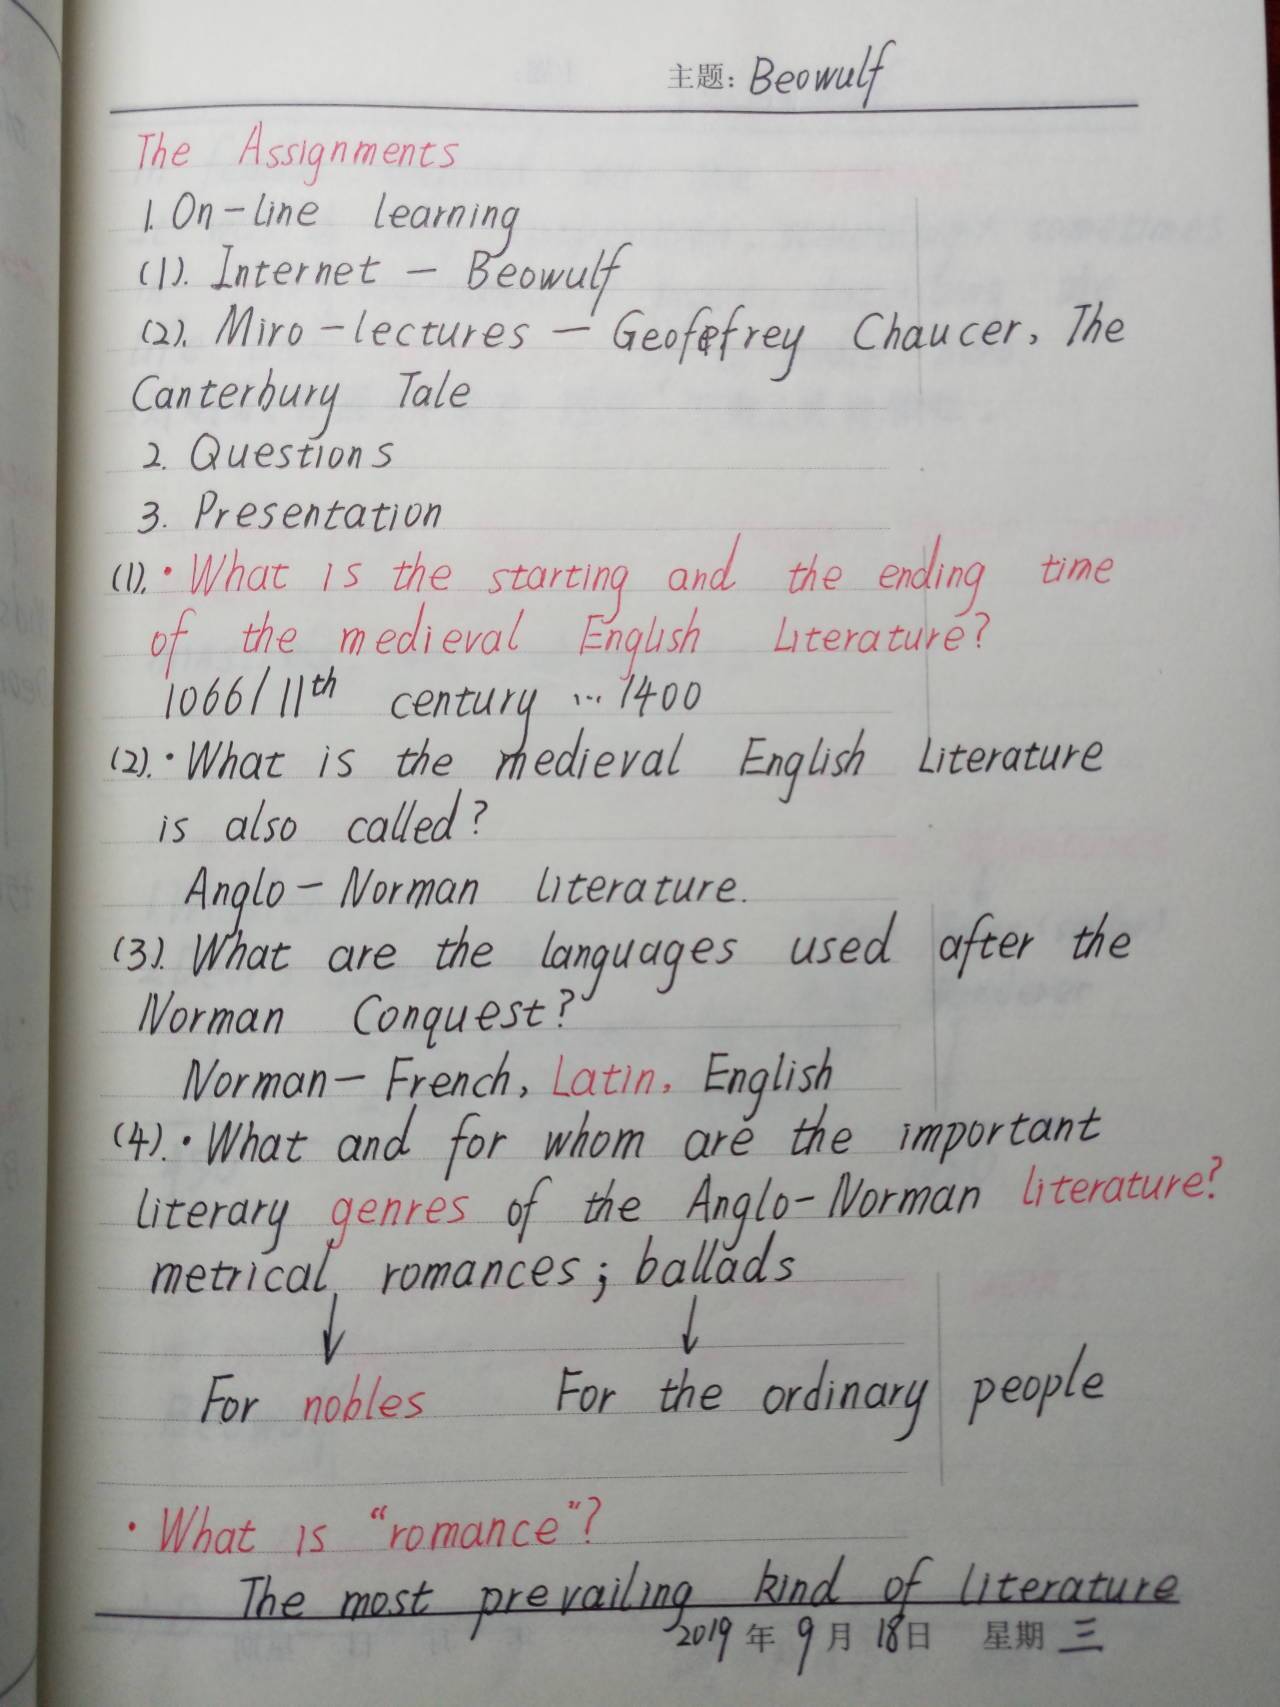 主题: Beowulf
The Assignments
1. On-line learning
(1). Internet — Beowulf
(2). Miro-lectures — Geoffrey Chaucer, The
Canterbury Tale
2. Questions
3. Presentation
(1). • What is the starting and the ending time
of the medieval English Literature?
1066/11th century ... 1400
(2). • What is the medieval English Literature
is also called?
Anglo-Norman literature.
(3). What are the languages used after the
Norman Conquest?
Norman-French, Latin, English
(4). • What and for whom are the important
literary genres of the Anglo-Norman literature?
metrical romances; ballads
↓ ↓
For nobles For the ordinary people
• What is "romance"?
The most prevailing kind of literature
2019年9月18日 星期三